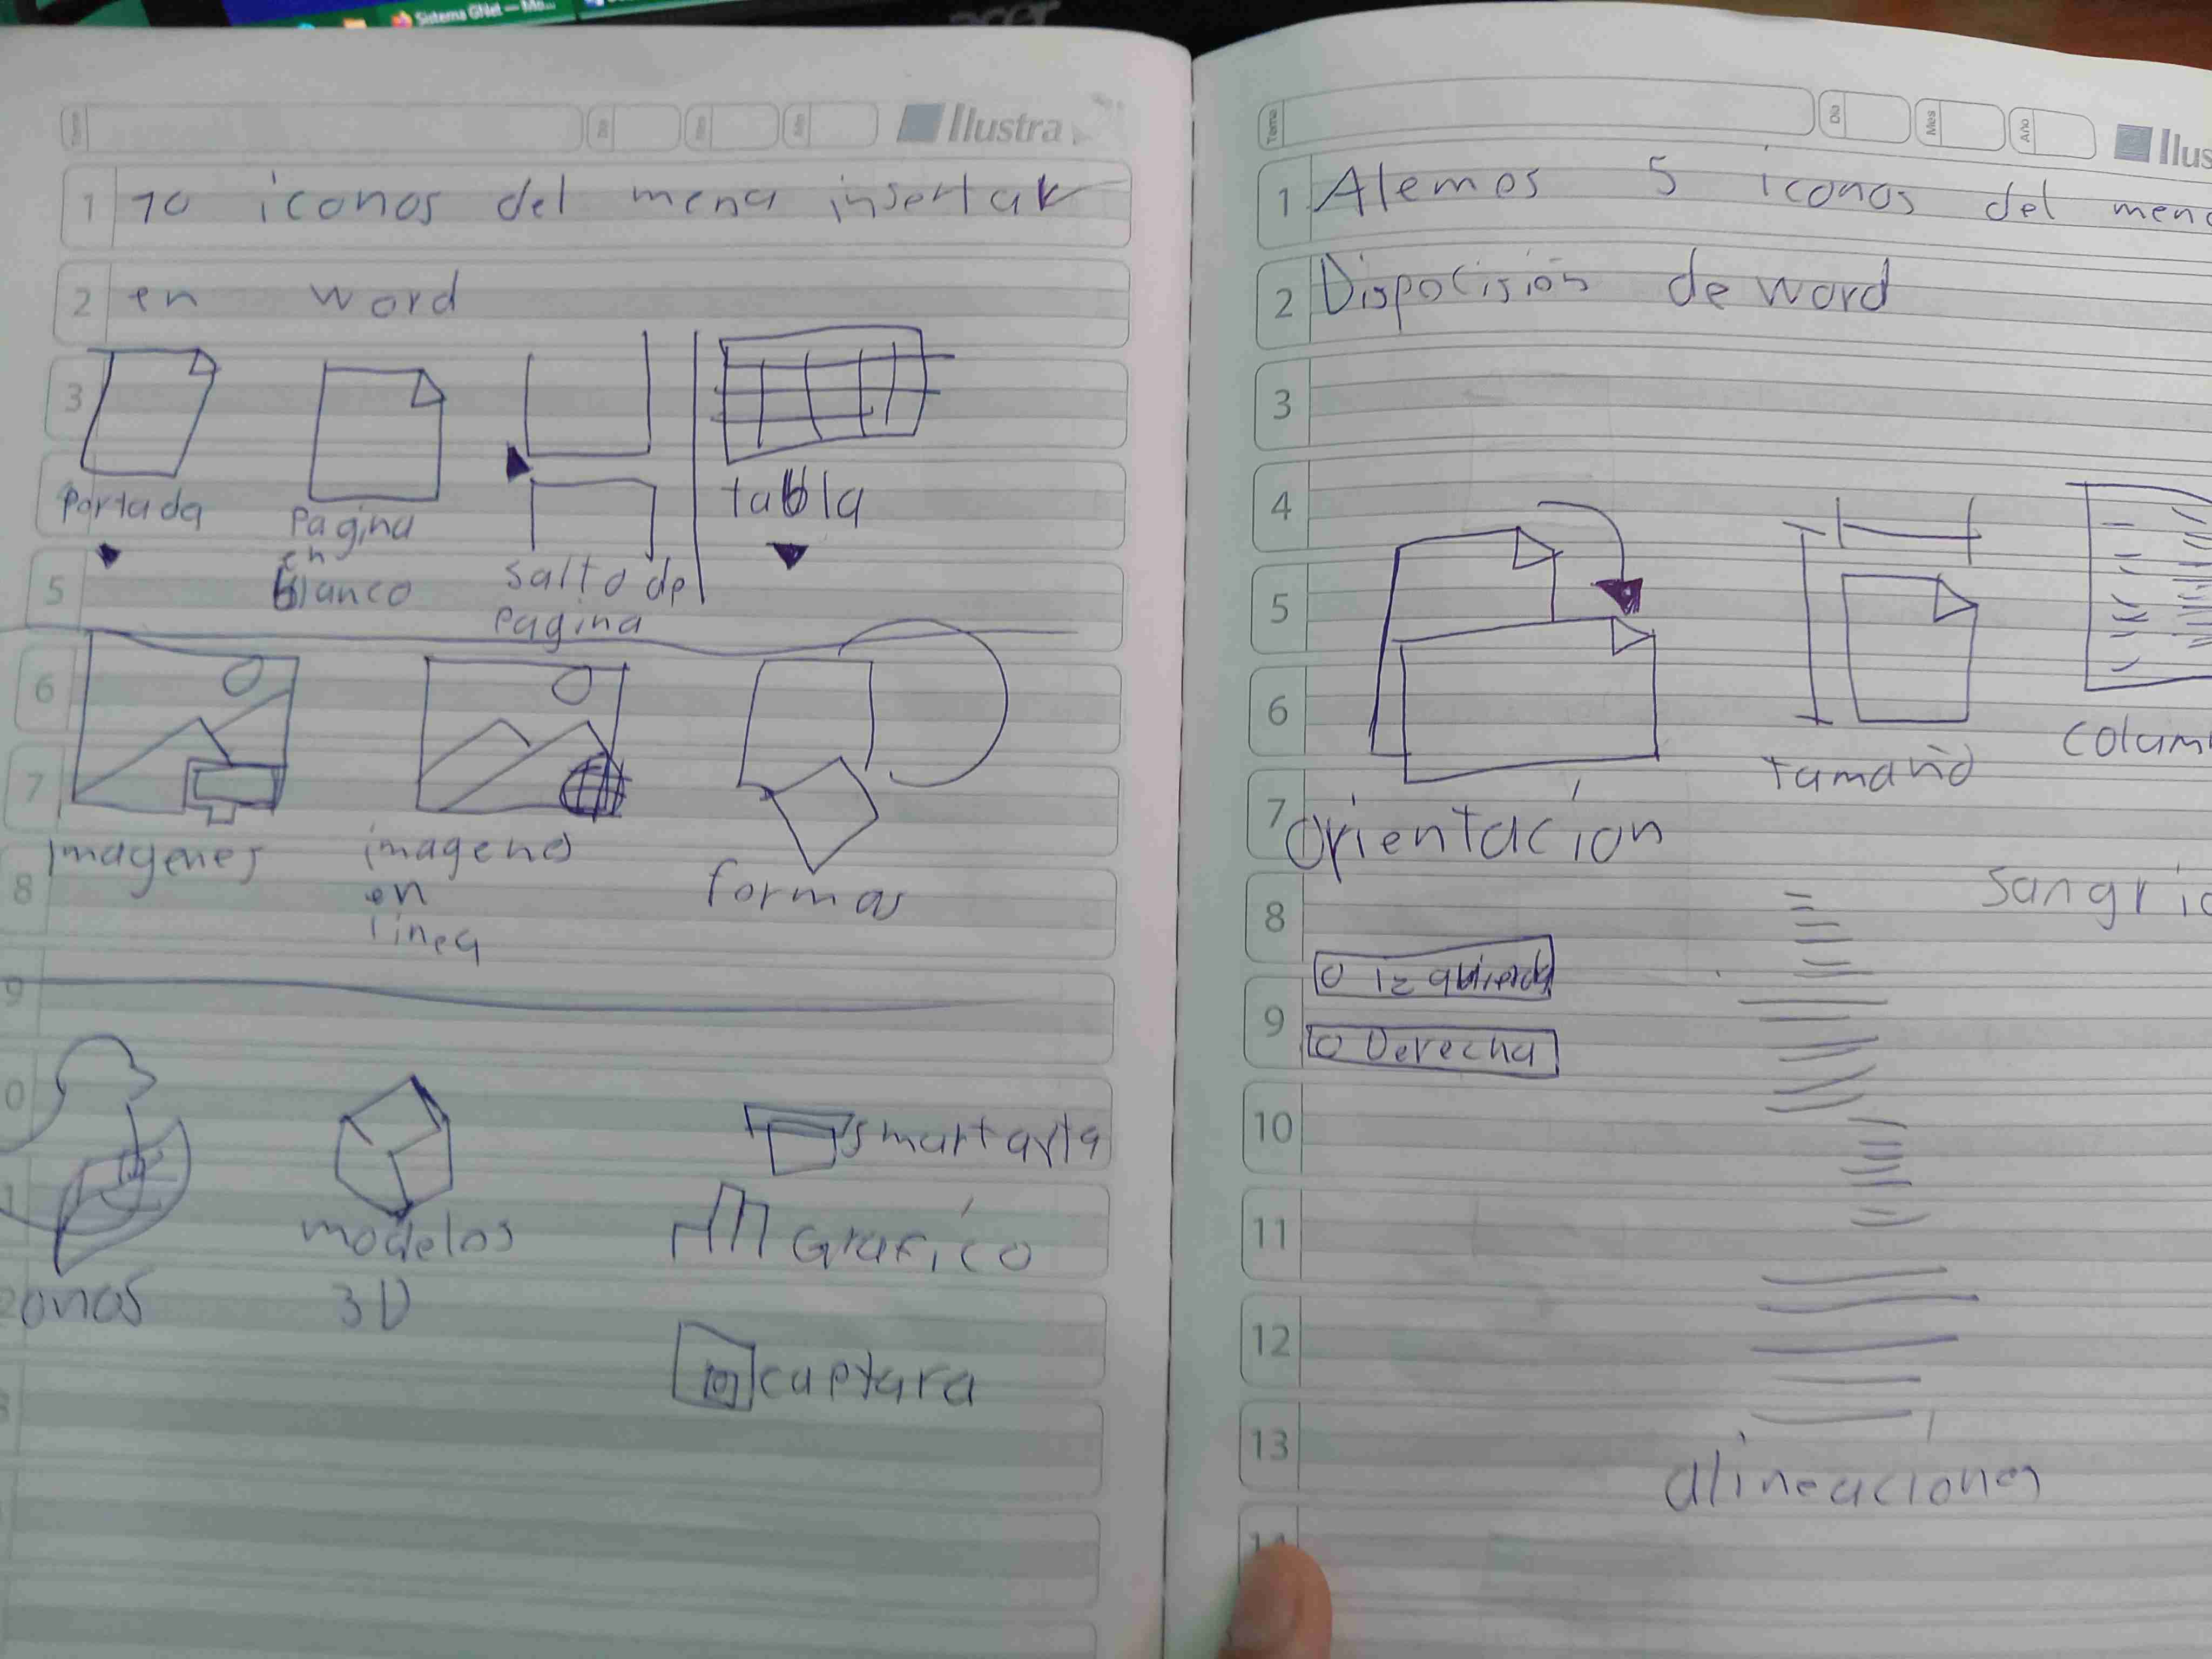 Sistema GNet — Mo...
acer
Illustra
1 10 iconos del menu insertar
2 en word
3
Portada
Pagina
en
blanco
salto de
Pagina
tabla
5
6
7
imagenes
imagenes
en
linea
formas
8
9
0
onos
modelos
3D
smartarta
Gráfico
captura
Tema
Día
Mes
Año
Illus
1 Alemos 5 iconos del menu
2 Dispocisión de word
3
4
5
6
orientación
Tamaño
Colum
7
8
Sangría
O Izquierda
9
O Derecha
10
11
12
13
alineaciónes
14